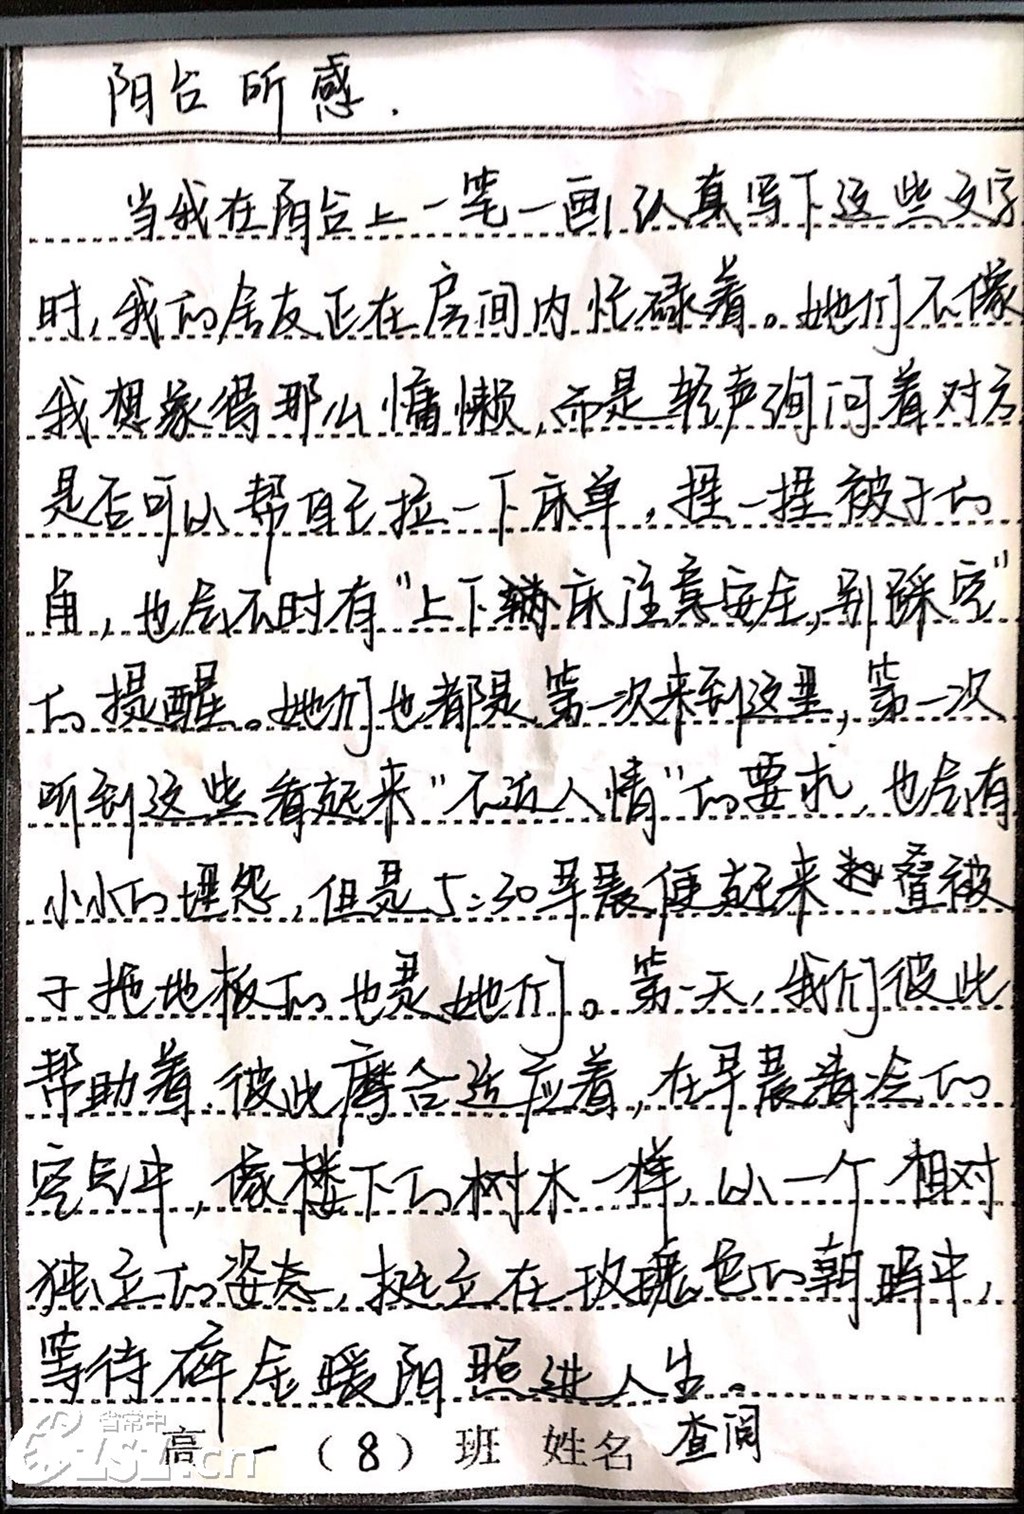 阳台所感.
当我在阳台上一笔一画认真写下这些文字
时,我的舍友正在房间内忙碌着。她们不像
我想象得那么慵懒,而是轻声询问着对方
是否可以帮自己拉一下床单,捏一捏被子的
角,也会不时有"上下床注意安全,别踩空"
的提醒。她们也都是第一次来到这里,第一次
听到这些看起来"不近人情"的要求,也会有
小小的埋怨,但是5:30早晨便起来叠被
子拖地板的也是她们。第一天,我们彼此
帮助着,彼此磨合适应着,在早晨清冷的
空气中,像楼下的树木一样,以一个相对
独立的姿态,挺立在玫瑰色的朝晖中,
等待碎金暖阳照进人生。
高一(8)班 姓名 查阅
省常中